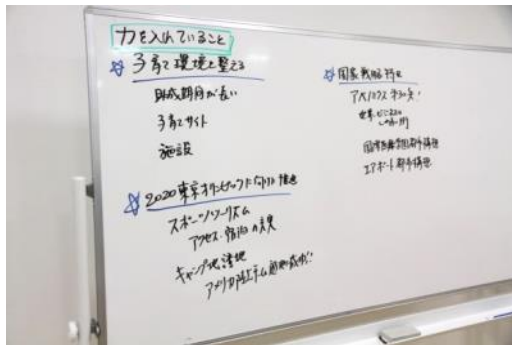 力を入れていること
☆ 子育て環境を整える
助成期間が長い
子育てサイト
施設
☆ 2020東京オリンピック
スポーツツーリズム
アクセス・宿泊の充実
キャンプ地誘地
アメリカ陸上チーム
☆ 国家戦略特区
アベノミクス 第3の矢!
世界一ビジネスの
しやすい
国際医療学園都市構想
エアポート都市構想